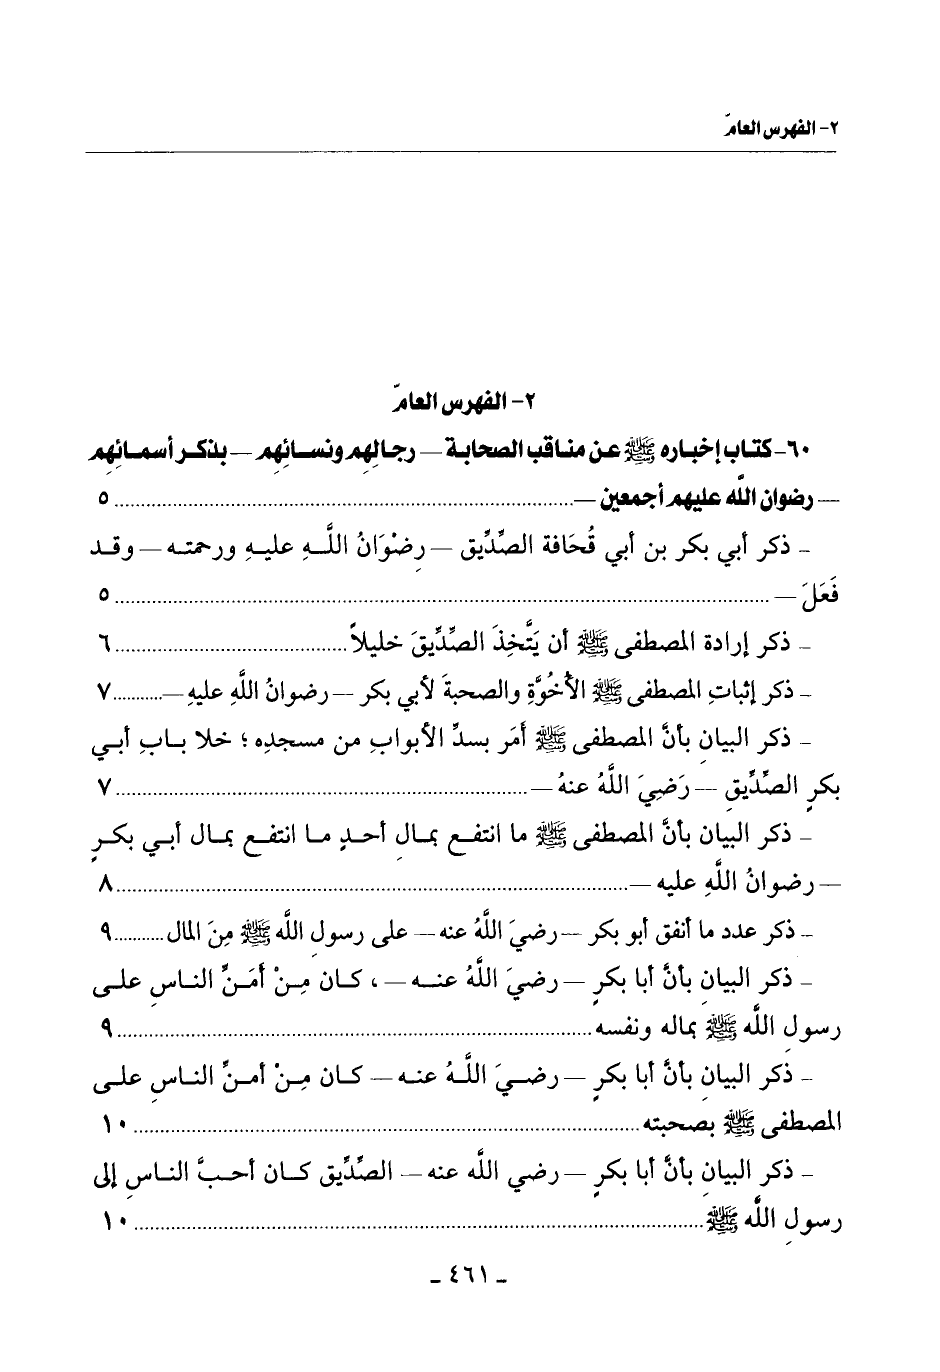 ٢- الفهرس العامّ
٢- الفهرس العامّ
٦٠- كتاب إخباره ﷺ عن مناقب الصحابة — رجالهم ونسائهم — بذكر أسمائهم
— رضوان اللَّه عليهم أجمعين — ........ ٥
- ذكر أبي بكر بن أبي قُحَافة الصِّدِّيق — رِضْوَانُ اللَّهِ عليهِ ورحمته — وقد
فَعَلَ — ........ ٥
- ذكر إرادة المصطفى ﷺ أن يَتَّخِذَ الصِّدِّيقَ خليلاً ........ ٦
- ذكر إثباتِ المصطفى ﷺ الأُخُوَّةِ والصحبةَ لأبي بكر — رضوانُ اللَّهِ عليهِ — ........ ٧
- ذكر البيانِ بأنَّ المصطفى ﷺ أَمَر بسدِّ الأبوابِ من مسجدِه ؛ خلا بابِ أبي
بكرٍ الصِّدِّيقِ — رَضِيَ اللَّهُ عنهُ — ........ ٧
- ذكر البيان بأنَّ المصطفى ﷺ ما انتفع بمالِ أحدٍ ما انتفع بمال أبي بكرٍ
— رضوانُ اللَّهِ عليه — ........ ٨
- ذكر عدد ما أنفق أبو بكر — رضيَ اللَّهُ عنه — على رسولِ اللَّه ﷺ مِنَ المال ........ ٩
- ذكر البيانِ بأنَّ أبا بكرٍ — رضيَ اللَّهُ عنه — ، كان مِنْ أَمَنِّ الناسِ على
رسولِ اللَّه ﷺ بماله ونفسه ........ ٩
- ذكر البيانِ بأنَّ أبا بكرٍ — رضيَ اللَّهُ عنه — كان مِنْ أمنِّ الناسِ على
المصطفى ﷺ بصحبته ........ ١٠
- ذكر البيانِ بأنَّ أبا بكرٍ — رضي اللَّه عنه — الصِّدِّيق كان أحبَّ الناسِ إلى
رسولِ اللَّه ﷺ ........ ١٠
- ٤٦١ -